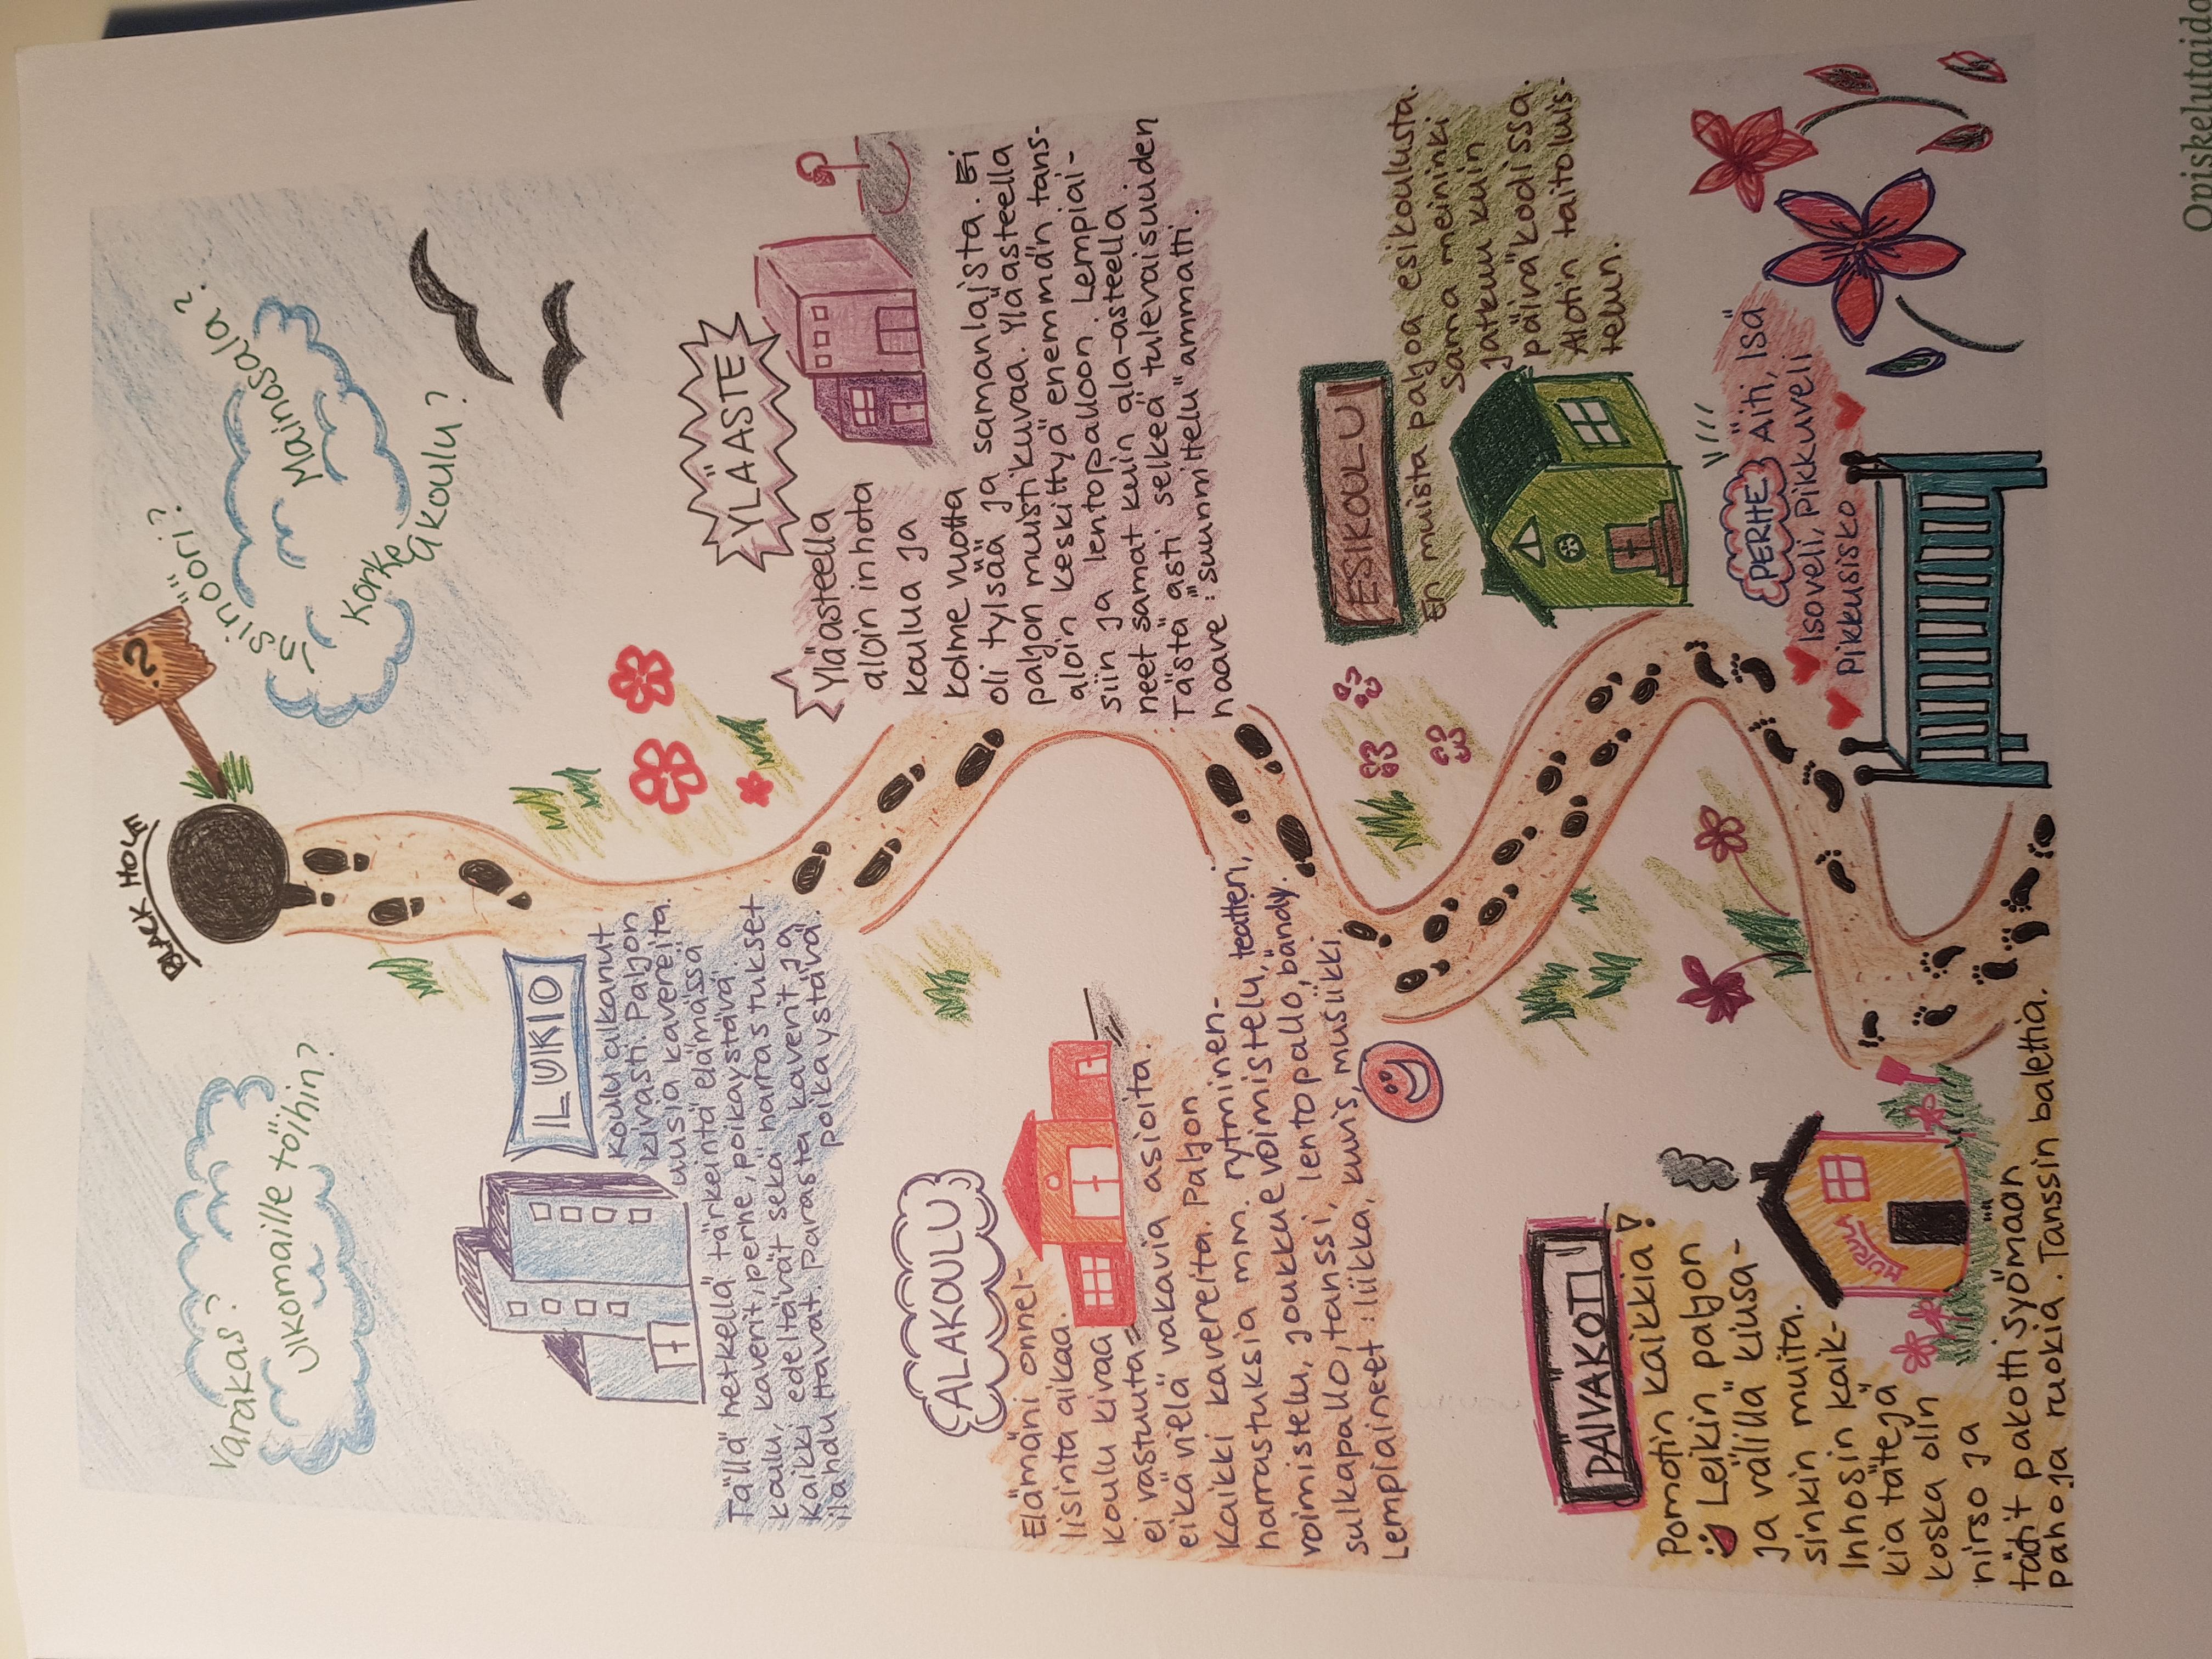 Varakas?
Ulkomaille töihin?
BLACK HOLE
?
"sinööri"?
Mainasala?
Korkeakoulu?
LUKIO
Koulu alkanut
kivasti. Paljon
uusia kavereita.
Tällä hetkellä tärkeintä elämässä
koulu, kaverit, perhe, poikaystävä.
Kaikki edeltävät sekä harrastukset
ilahduttavat. Parasta kaverit ja
poikaystävä.
YLÄASTE
Yläasteella
aloin inhota
koulua ja
kolme vuotta
oli tylsää ja samanlaista. Ei
paljon muistikuvaa. Yläasteella
aloin keskittyä enemmän tans-
siin ja lentopalloon. Lempiai-
neet samat kuin ala-asteella
Tästä asti selkeä tulevaisuuden
haave: "suunnittelu" ammatti.
ALAKOULU
Elämäni onnel-
lisinta aikaa.
Koulu kivaa
ei vastuuta
eikä vielä vakavia asioita.
Kaikki kavereita. Paljon
harrastuksia mm. rytminen-
voimistelu, joukkue voimistelu, teatteri,
sulkapallo, tanssi, lentopallo, bändy.
Lempiaineet: liikka, kuvis, musiikki
ESIKOULU
En muista paljoa esikoulusta.
Sama meininki
jatkuu kuin
päiväkodissa.
Aloitin taitoluis-
telun.
PERHE: Äiti, Isä
Isoveli, pikkuveli
Pikkusisko
PÄIVÄKOTI
Pomotin kaikkia!
Leikin paljon
ja välillä kiusa-
sinkin muita.
Inhosin kaik-
kia tätejä
koska olin
nirso ja
tädit pakotti syömään
pahoja ruokia. Tanssin balettia.
MURULA
Opiskelutaido